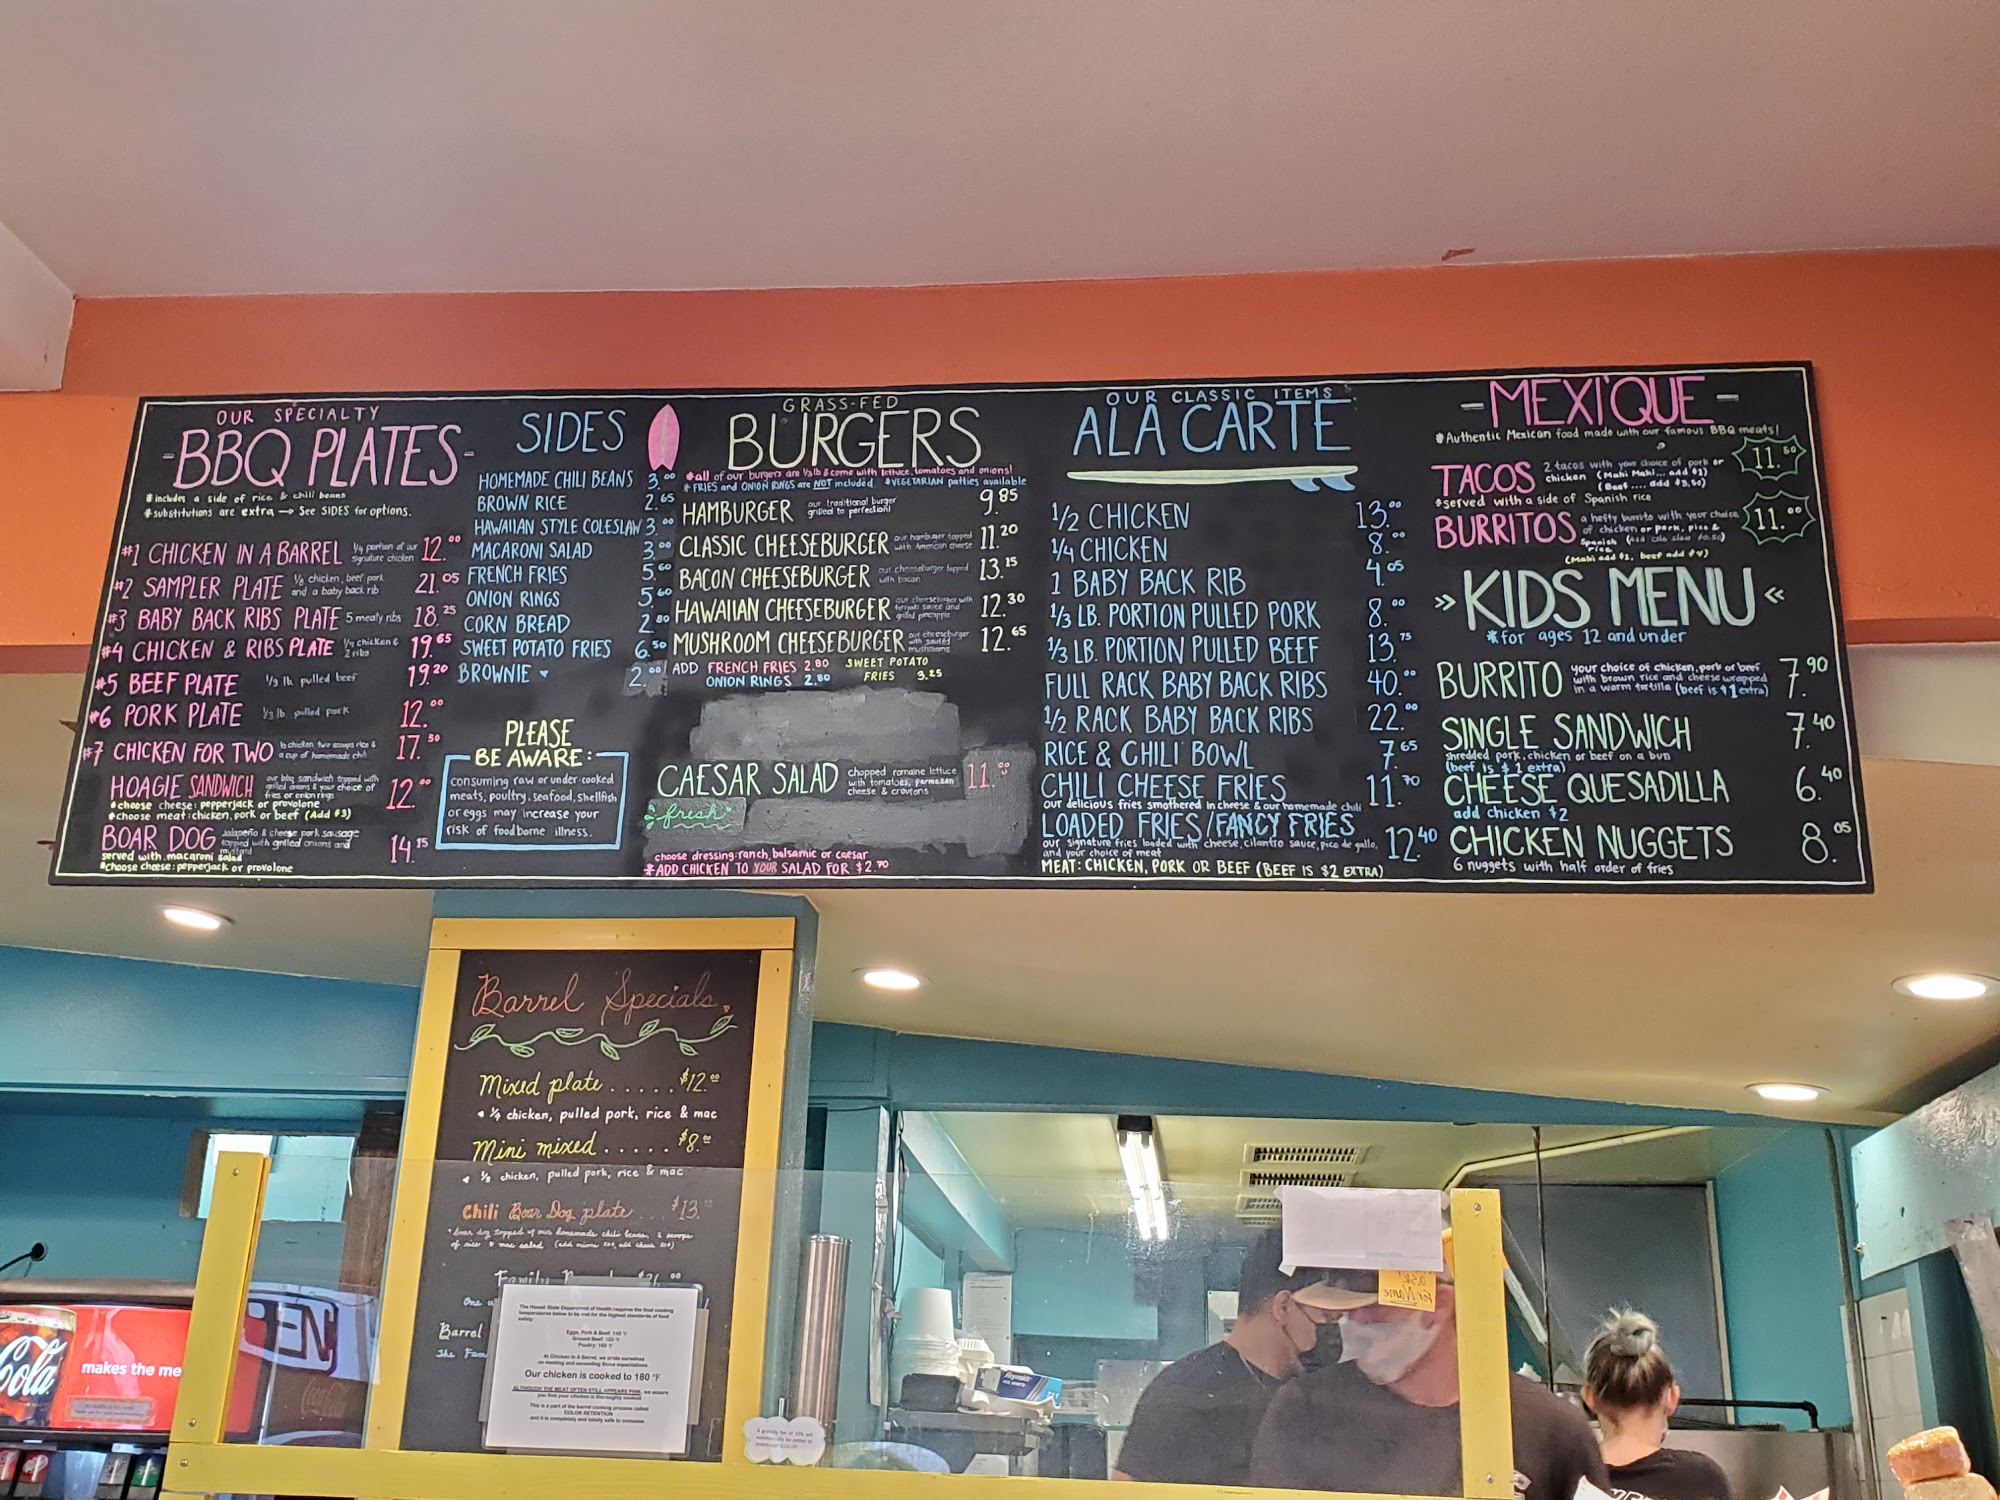 OUR SPECIALTY
-BBQ PLATES-
*includes a side of rice & chili beans
*substitutions are extra → See SIDES for options.
#1 CHICKEN IN A BARREL 1/4 portion of our signature chicken 12.00
#2 SAMPLER PLATE 1/8 chicken, beef pork and a baby back rib 21.05
#3 BABY BACK RIBS PLATE 5 meaty ribs 18.25
#4 CHICKEN & RIBS PLATE 1/4 chicken & 2 ribs 19.65
#5 BEEF PLATE 1/3 lb. pulled beef 19.20
#6 PORK PLATE 1/3 lb. pulled pork 12.00
#7 CHICKEN FOR TWO 1/2 chicken two scoops rice & a cup of homemade chili 17.50
HOAGIE SANDWICH our bbq sandwich topped with grilled onions & your choice of fries or onion rings 12.00
*choose cheese: pepperjack or provolone
*choose meat: chicken, pork or beef (Add $3)
BOAR DOG Jalapeño & cheese pork sausage topped with grilled onions and mustard 14.15
served with macaroni salad
*choose cheese: pepperjack or provolone
SIDES
HOMEMADE CHILI BEANS 3.00
BROWN RICE 2.65
HAWAIIAN STYLE COLESLAW 3.00
MACARONI SALAD 3.00
FRENCH FRIES 5.60
ONION RINGS 5.60
CORN BREAD 2.80
SWEET POTATO FRIES 6.50
BROWNIE 2.00
PLEASE
BE AWARE:
consuming raw or under cooked
meats, poultry, seafood, shellfish
or eggs may increase your
risk of foodborne illness.
GRASS-FED
BURGERS
*all of our burgers are 1/2 lb & come with lettuce, tomatoes and onions!
*FRIES and ONION RINGS are NOT included. *VEGETARIAN patties available
HAMBURGER our traditional burger grilled to perfection! 9.85
CLASSIC CHEESEBURGER our hamburger topped with American cheese 11.20
BACON CHEESEBURGER our cheeseburger topped with bacon 13.15
HAWAIIAN CHEESEBURGER our cheeseburger with teriyaki sauce and grilled pineapple 12.30
MUSHROOM CHEESEBURGER our cheeseburger with sautéed mushrooms 12.65
ADD FRENCH FRIES 2.80 SWEET POTATO
ONION RINGS 2.80 FRIES 3.25
CAESAR SALAD chopped romaine lettuce with tomatoes, parmesan cheese & croutons 11.00
fresh
choose dressing: ranch, balsamic or caesar
*ADD CHICKEN TO YOUR SALAD FOR $2.70
OUR CLASSIC ITEMS
ALA CARTE
1/2 CHICKEN 13.00
1/4 CHICKEN 8.00
1 BABY BACK RIB 4.05
1/3 LB. PORTION PULLED PORK 8.00
1/3 LB. PORTION PULLED BEEF 13.75
FULL RACK BABY BACK RIBS 40.00
1/2 RACK BABY BACK RIBS 22.00
RICE & CHILI BOWL 7.65
CHILI CHEESE FRIES 11.70
our delicious fries smothered in cheese & our homemade chili
LOADED FRIES/FANCY FRIES 12.40
our signature fries loaded with cheese, cilantro sauce, pico de gallo,
and your choice of meat
MEAT: CHICKEN, PORK OR BEEF (BEEF IS $2 EXTRA)
-MEXI'QUE-
*Authentic Mexican food made with our famous BBQ meats!
TACOS 2 tacos with your choice of pork or chicken (Mahi Mahi... add $1) (Beef .... add $3.50) 11.50
*served with a side of Spanish rice
BURRITOS a hefty burrito with your choice of chicken or pork, rice & Spanish rice (Add cole slaw $0.50) 11.00
(Mahi add $1, beef add $4)
» KIDS MENU «
*for ages 12 and under
BURRITO your choice of chicken, pork or beef with brown rice and cheese wrapped in a warm tortilla (beef is $1 extra) 7.90
SINGLE SANDWICH 7.40
shredded pork, chicken or beef on a bun
(beef is $1 extra)
CHEESE QUESADILLA 6.40
add chicken $2
CHICKEN NUGGETS 8.05
6 nuggets with half order of fries
Barrel Specials
Mixed plate ..... $12.00
1/4 chicken, pulled pork, rice & mac
Mini mixed ..... $8.00
1/8 chicken, pulled pork, rice & mac
Chili Boar Dog plate ... $13.
*boar dog topped of our homemade chili beans, 2 scoops
of rice & mac salad
Family
Barrel
The Fam
The Hawaii State Department of Health requires the final cooking
temperatures below to be met for the highest standards of food
safety:
Eggs, Pork & Beef: 145 °F
Ground Beef: 155 °F
Poultry: 165 °F
At Chicken In A Barrel, we pride ourselves
on meeting and exceeding these expectations.
Our chicken is cooked to 180 °F
ALTHOUGH THE MEAT OFTEN STILL APPEARS PINK, we assure
you that your chicken is thoroughly cooked.
This is a part of the barrel cooking process called
COLOR RETENTION
and it is completely and totally safe to consume.
Cola
makes the me
EN
Reynolds